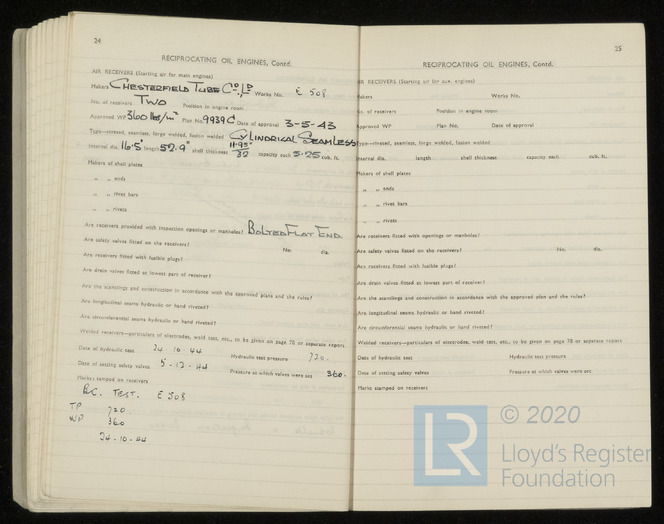 24
RECIPROCATING OIL ENGINES, Contd.
AIR RECEIVERS (Starting air for main engines)
Makers CHESTERFIELD TUBE Co. Ld Works No. E 508
No. of receivers TWO Position in engine room
Approved WP 360 lbs/in² Plan No. 9939C Date of approval 3-5-43
Type—riveted, seamless, forge welded, fusion welded CYLINDRICAL SEAMLESS
Internal dia. 16.5" length 52.9" shell thickness 11.95"/32 capacity each 5.25 cub. ft.
Makers of shell plates
„ „ ends
„ „ rivet bars
„ „ rivets
Are receivers provided with inspection openings or manholes? BOLTED FLAT END.
Are safety valves fitted on the receivers? No. dia.
Are receivers fitted with fusible plugs?
Are drain valves fitted at lowest part of receiver?
Are the scantlings and construction in accordance with the approved plans and the rules?
Are longitudinal seams hydraulic or hand riveted?
Are circumferential seams hydraulic or hand riveted?
Welded receivers—particulars of electrodes, weld test, etc., to be given on page 78 or separate report.
Date of hydraulic test 24.10.44 Hydraulic test pressure 720.
Date of setting safety valves 5-12-44 Pressure at which valves were set 360.
Marks stamped on receivers
B.C. TEST. E 508
TP 720.
WP 360
24-10-44
25
RECIPROCATING OIL ENGINES, Contd.
AIR RECEIVERS (Starting air for aux. engines)
Makers Works No.
No. of receivers Position in engine room
Approved WP Plan No. Date of approval
Type—riveted, seamless, forge welded, fusion welded
Internal dia. length shell thickness capacity each cub. ft.
Makers of shell plates
„ „ ends
„ „ rivet bars
„ „ rivets
Are receivers fitted with openings or manholes?
Are safety valves fitted on the receivers? No. dia.
Are receivers fitted with fusible plugs?
Are drain valves fitted at lowest part of receiver?
Are the scantlings and construction in accordance with the approved plan and the rules?
Are longitudinal seams hydraulic or hand riveted?
Are circumferential seams hydraulic or hand riveted?
Welded receivers—particulars of electrodes, weld test, etc., to be given on page 78 or separate report
Date of hydraulic test Hydraulic test pressure
Date of setting safety valves Pressure at which valves were set
Marks stamped on receivers
LR © 2020
Lloyd's Register
Foundation